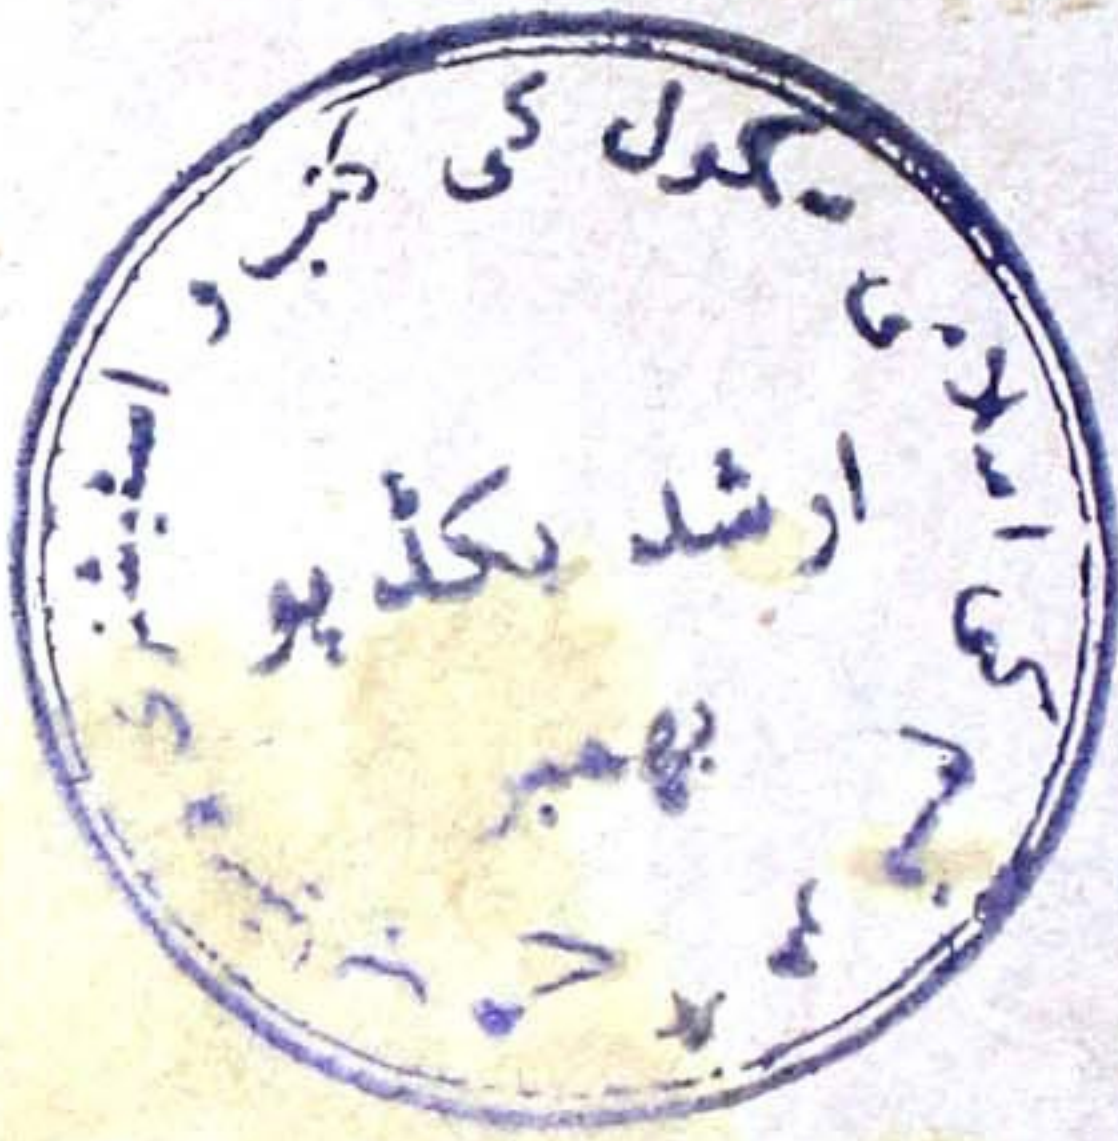 کی اسلامی سکول کی کتب و اسٹیشنری
ارشد بکڈپو
بھمبر